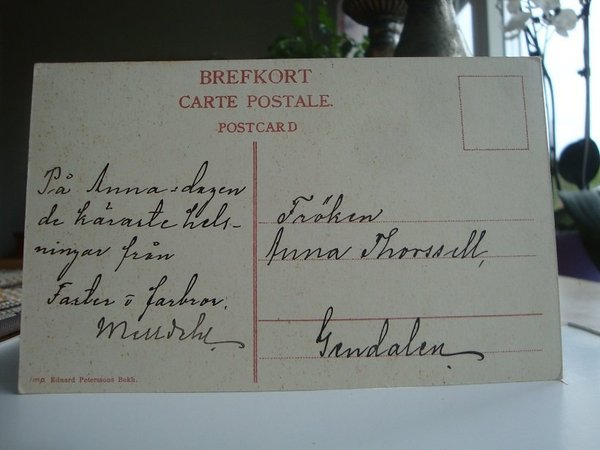 BREFKORT
CARTE POSTALE.
POSTCARD
På Anna-dagen
de käraste hels-
ningar från
Faster o farbror.
Fröken
Anna Thorssell,
Gendalen
Imp. Eduard Peterssons Bokh.